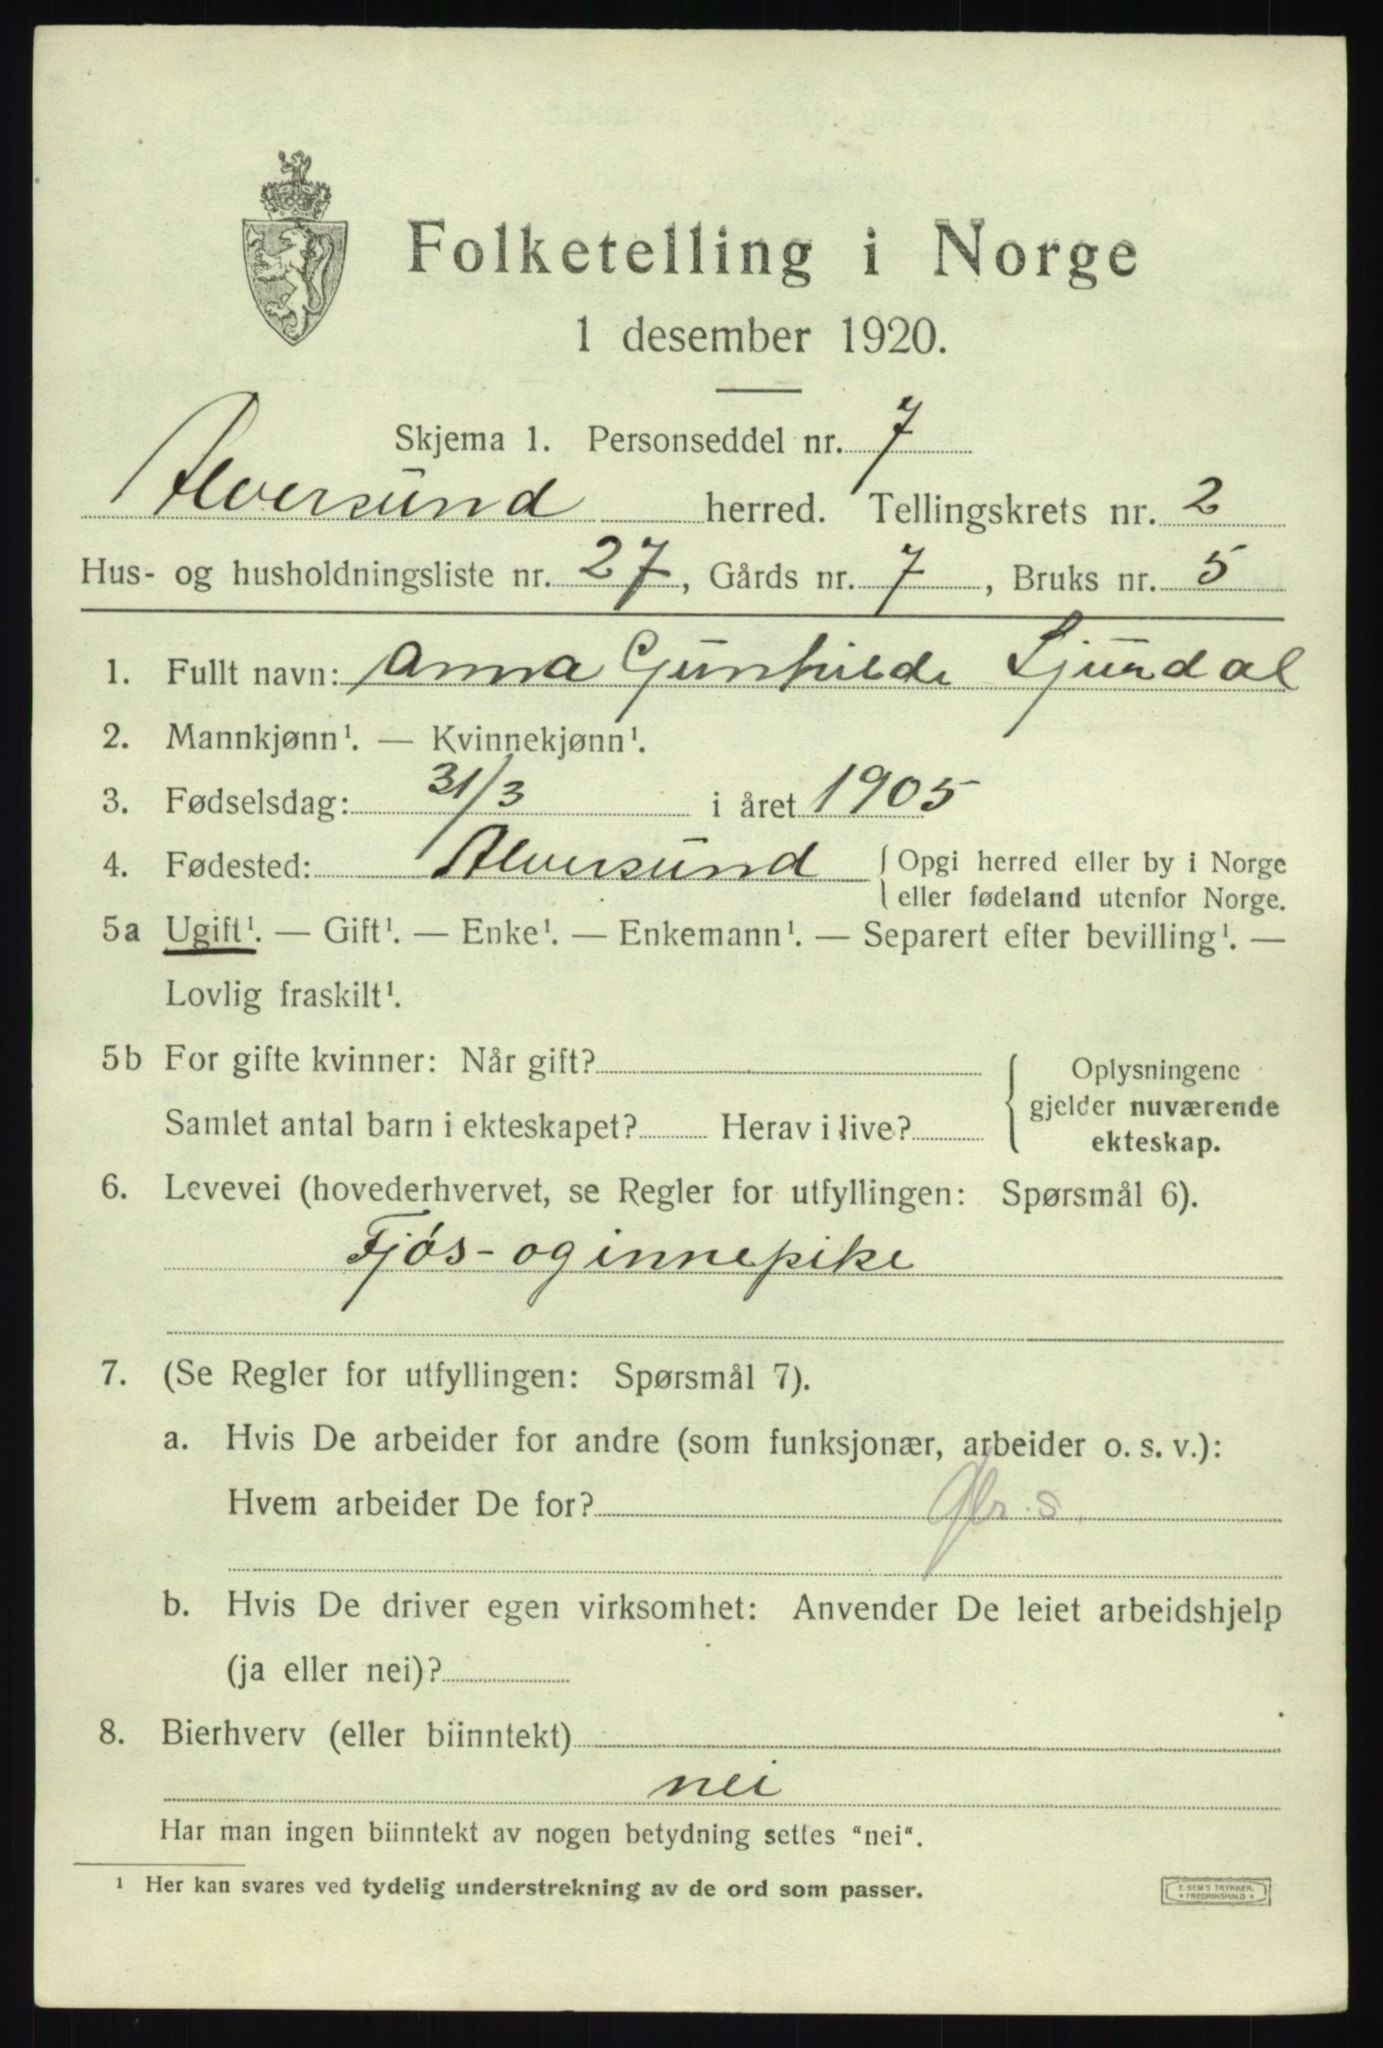 Folketelling i Norge
1 desember 1920.
Skjema 1. Personseddel nr. 7
Alversund herred. Tellingskrets nr. 2
Hus- og husholdningsliste nr. 27, Gårds nr. 7, Bruks nr. 5
1. Fullt navn: Anna Gunhilde Sjurdal
2. Mannkjønn¹. — Kvinnekjønn¹.
3. Fødselsdag: 31/3 i året 1905
4. Fødested: Alversund { Opgi herred eller by i Norge
eller fødeland utenfor Norge.
5a Ugift¹. — Gift¹. — Enke¹. — Enkemann¹. — Separert efter bevilling¹. —
Lovlig fraskilt¹.
5b For gifte kvinner: Når gift?
Samlet antal barn i ekteskapet? Herav i live?
{ Oplysningene
gjelder nuværende
ekteskap.
6. Levevei (hovederhvervet, se Regler for utfyllingen: Spørsmål 6).
Fjós- og innepike
7. (Se Regler for utfyllingen: Spørsmål 7).
a. Hvis De arbeider for andre (som funksjonær, arbeider o. s. v.):
Hvem arbeider De for?
b. Hvis De driver egen virksomhet: Anvender De leiet arbeidshjelp
(ja eller nei)?
8. Bierhverv (eller biinntekt)
nei
Har man ingen biinntekt av nogen betydning settes "nei".
¹ Her kan svares ved tydelig understrekning av de ord som passer.
E. SEM'S TRYKKER.
* FREDRIKSHALD *